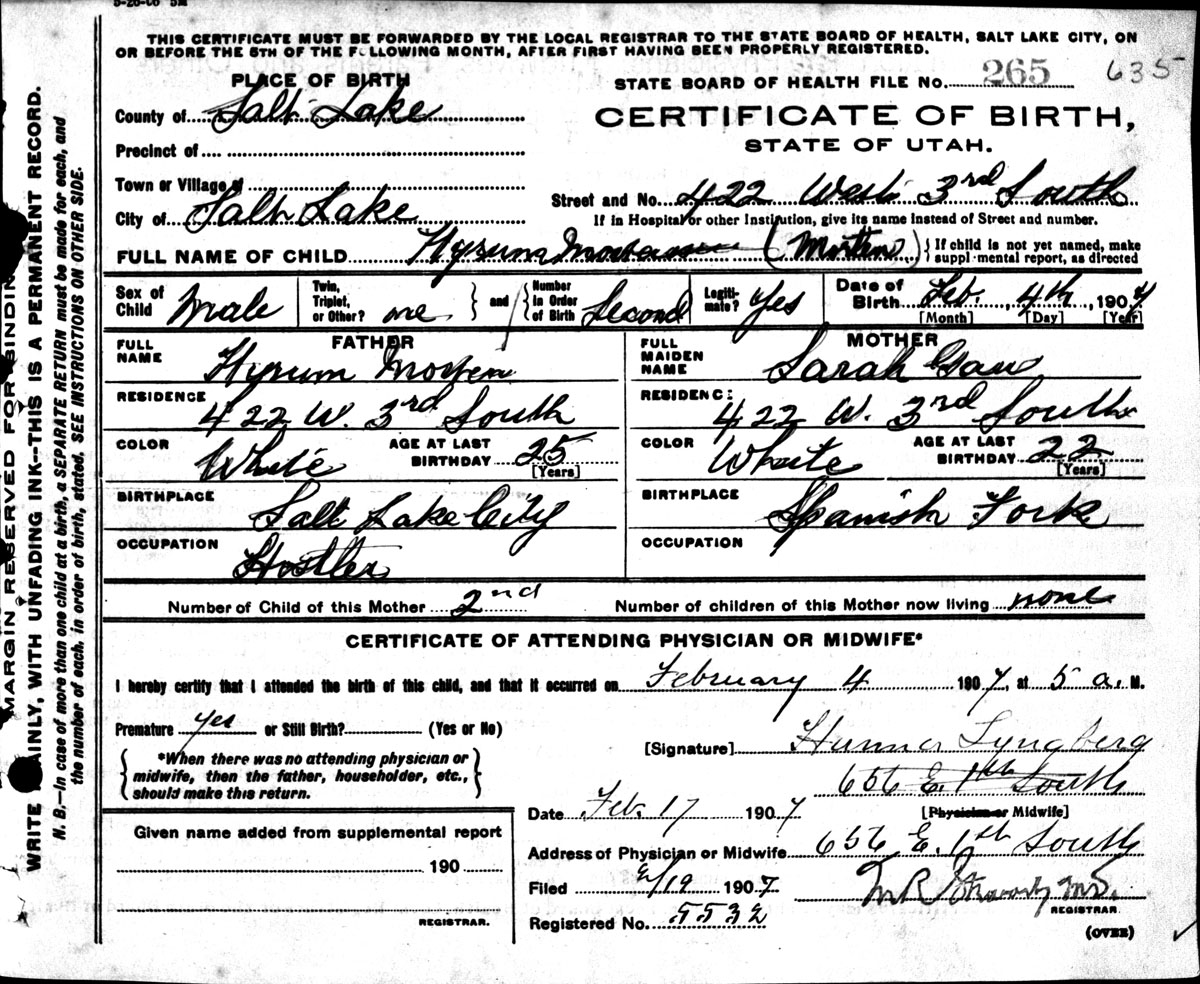 THIS CERTIFICATE MUST BE FORWARDED BY THE LOCAL REGISTRAR TO THE STATE BOARD OF HEALTH, SALT LAKE CITY, ON
OR BEFORE THE 5TH OF THE FOLLOWING MONTH, AFTER FIRST HAVING BEEN PROPERLY REGISTERED.
PLACE OF BIRTH
STATE BOARD OF HEALTH FILE No. 265 635
County of Salt Lake
CERTIFICATE OF BIRTH,
STATE OF UTAH.
Precinct of
Town or Village of
Street and No. 422 West 3rd South
City of Salt Lake
If in Hospital or other Institution, give its name instead of Street and number.
FULL NAME OF CHILD Hyrum (Morten) { If child is not yet named, make
supplemental report, as directed
Sex of Child Male
Twin, Triplet, or Other? one } and { Number in Order of Birth Second
Legitimate? Yes
Date of Birth Feb. 4th, 1907
[Month] [Day] [Year]
FATHER
FULL NAME Hyrum Morten
RESIDENCE 422 W. 3rd South
COLOR White
AGE AT LAST BIRTHDAY 25 [Years]
BIRTHPLACE Salt Lake City
OCCUPATION Hostler
MOTHER
FULL MAIDEN NAME Sarah
RESIDENCE 422 W. 3rd South
COLOR White
AGE AT LAST BIRTHDAY 22 [Years]
BIRTHPLACE Spanish Fork
OCCUPATION
Number of Child of this Mother 2nd
Number of children of this Mother now living none
CERTIFICATE OF ATTENDING PHYSICIAN OR MIDWIFE*
I hereby certify that I attended the birth of this child, and that it occurred on February 4 1907, at 5 a. M.
Premature yes or Still Birth? (Yes or No)
{ *When there was no attending physician or
midwife, then the father, householder, etc.,
should make this return. }
[Signature] Lyngberg
656 E. 1st South
[Physician or Midwife]
Date Feb. 17 1907
Address of Physician or Midwife 656 E. 1st South
Filed 2/19 1907
M.D.
REGISTRAR.
Registered No. 5532
(OVER)
Given name added from supplemental report
190
REGISTRAR.
MARGIN RESERVED FOR BINDING
WRITE PLAINLY, WITH UNFADING INK—THIS IS A PERMANENT RECORD.
N. B.—In case of more than one child at a birth, a SEPARATE RETURN must be made for each, and
the number of each, in order of birth, stated. SEE INSTRUCTIONS ON OTHER SIDE.